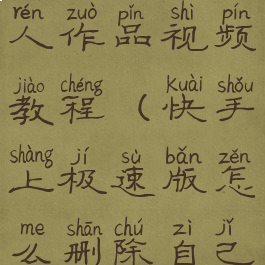 rén zuò pǐn shì pín
人作品视频
jiào chéng kuài shǒu
教程（快手
shàng jí sù bǎn zěn
上极速版怎
me shān chú zì jǐ
么删除自己